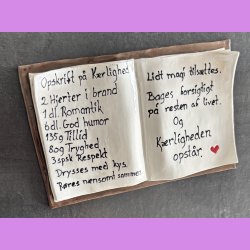 Opskrift på Kærlighed
2 Hjerter i brand
1 dl. Romantik
6 dl. God humor
135g Tillid
80g Tryghed
3 spsk Respekt
Drysses med kys.
Røres nænsomt sammen
Lidt magi tilsættes.
Bages forsigtigt
på resten af livet.
Og
Kærligheden
opstår.